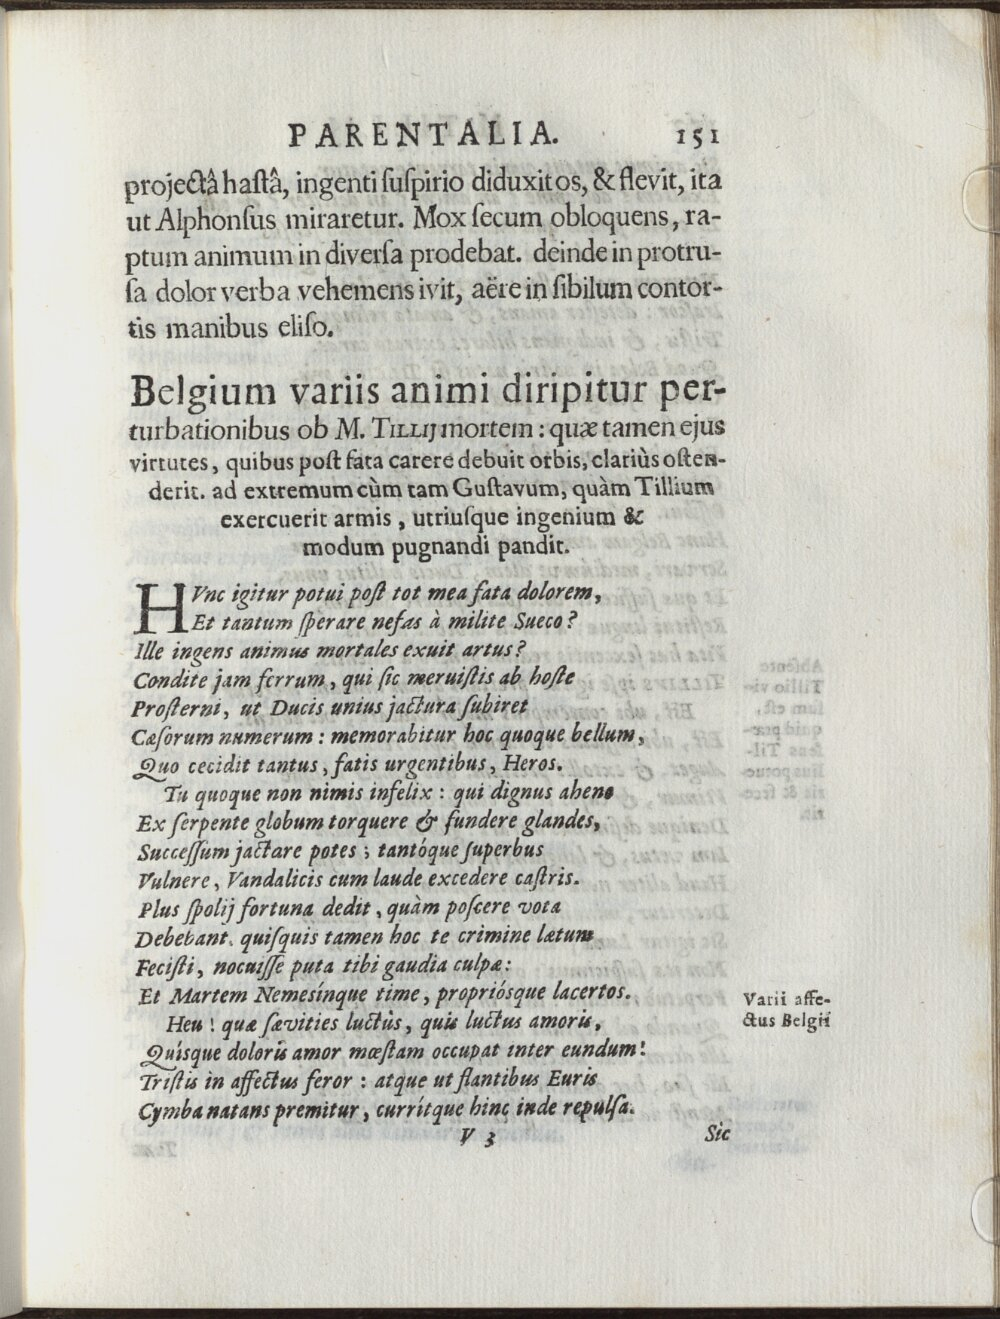 PARENTALIA. 151
projectâ haſtâ, ingenti ſuſpirio diduxit os, & flevit, ita
ut Alphonſus miraretur. Mox ſecum obloquens, ra-
ptum animum in diverſa prodebat. deinde in protru-
ſa dolor verba vehemens ivit, aëre in ſibilum contor-
tis manibus eliſo.
Belgium variis animi diripitur per-
turbationibus ob M. TILLIJ mortem : quæ tamen ejus
virtutes, quibus poſt fata carere debuit orbis, clariùs oſten-
derit. ad extremum cùm tam Guſtavum, quàm Tillium
exercuerit armis, utriuſque ingenium &
modum pugnandi pandit.
HVnc igitur potui poſt tot mea fata dolorem,
Et tantum ſperare nefas à milite Sueco?
Ille ingens animus mortales exuit artus?
Condite jam ferrum, qui ſic meruiſtis ab hoſte
Proſterni, ut Ducis unius jactura ſubiret
Cæſorum numerum : memorabitur hoc quoque bellum,
Quo cecidit tantus, fatis urgentibus, Heros.
Tu quoque non nimis infelix : qui dignus aheno
Ex ſerpente globum torquere & fundere glandes,
Succeſſum jactare potes ; tantóque ſuperbus
Vulnere, Vandalicis cum laude excedere caſtris.
Plus ſpolij fortuna dedit, quàm poſcere vota
Debebant. quiſquis tamen hoc te crimine lætum
Feciſti, nocuiſſe puta tibi gaudia culpæ:
Et Martem Nemesínque time, propriósque lacertos.
Varii affe-
ctus Belgii
Heu ! quæ ſævities luctùs, quis luctus amoris,
Quísque doloris amor mœſtam occupat inter eundum!
Triſtis in affectus feror : atque ut flantibus Euris
Cymba natans premitur, currítque hinc inde repulſa.
V 3 Sic